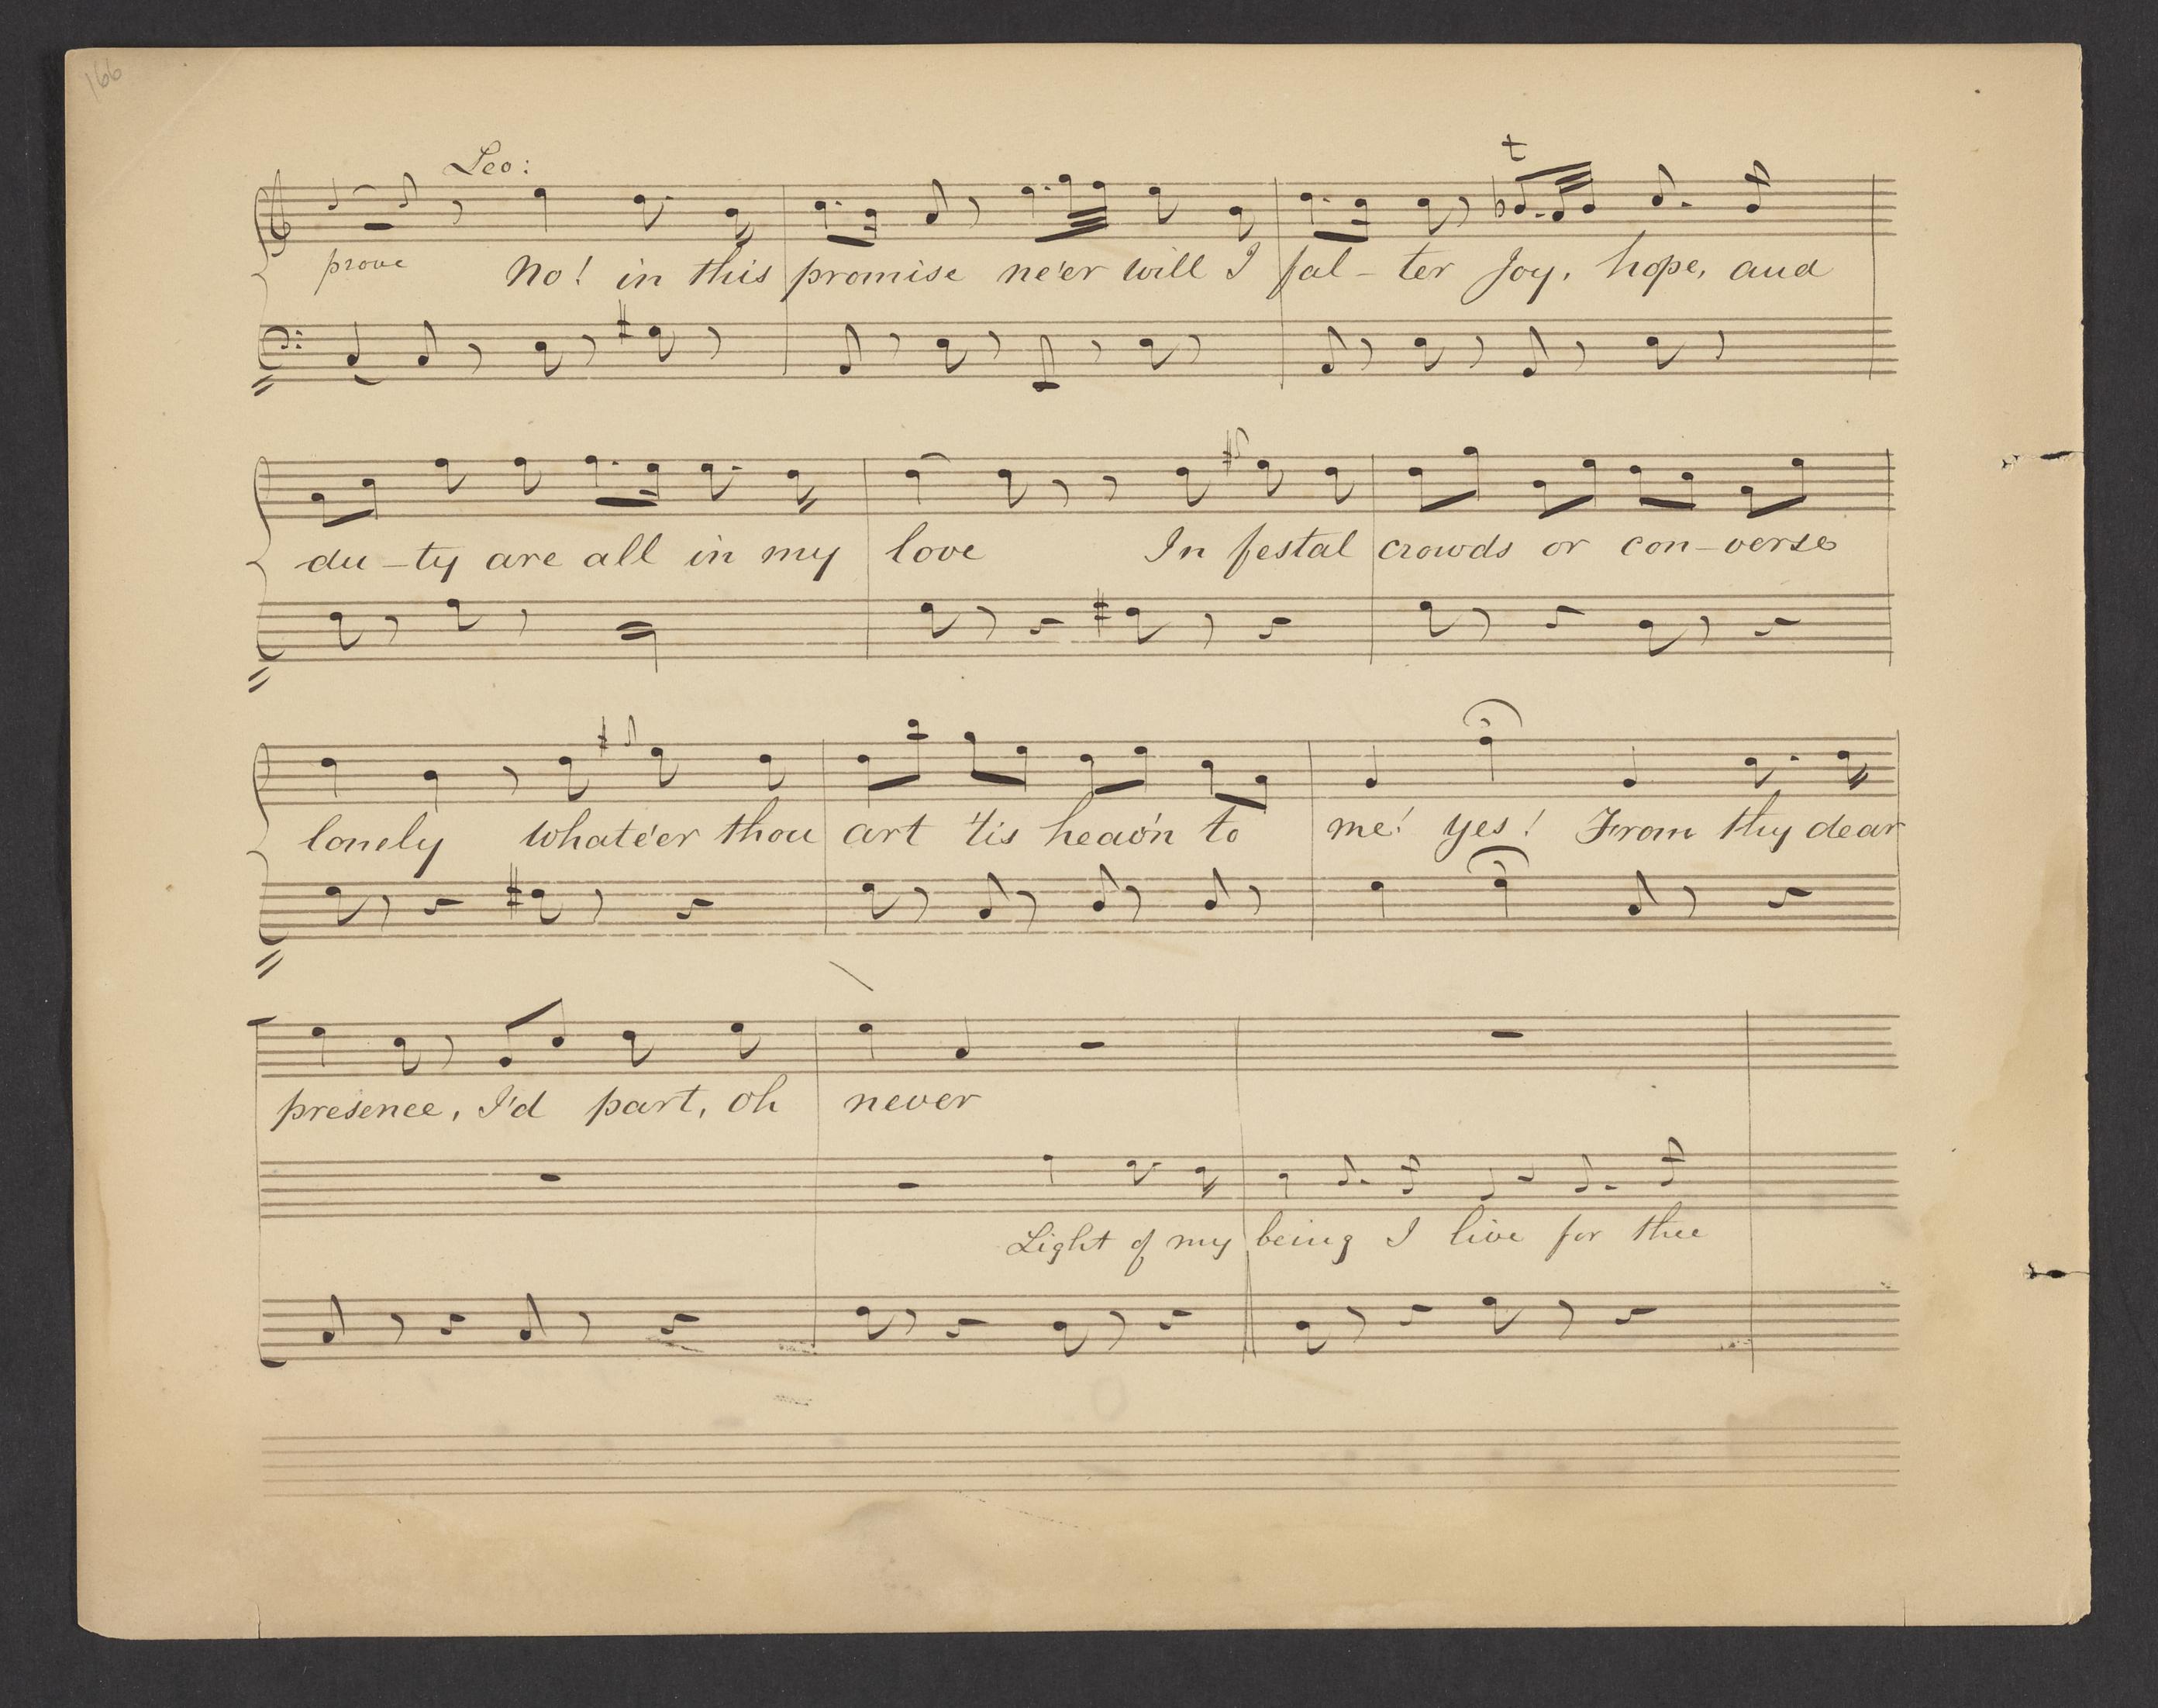 166
Leo:
prove No! in this promise ne'er will I fal-ter Joy, hope, and
du-ty are all in my love In festal crowds or con-verse
lonely whate'er thou art 'tis heav'n to me! yes! From thy dear
presence, I'd part, oh never
Light of my being I live for thee